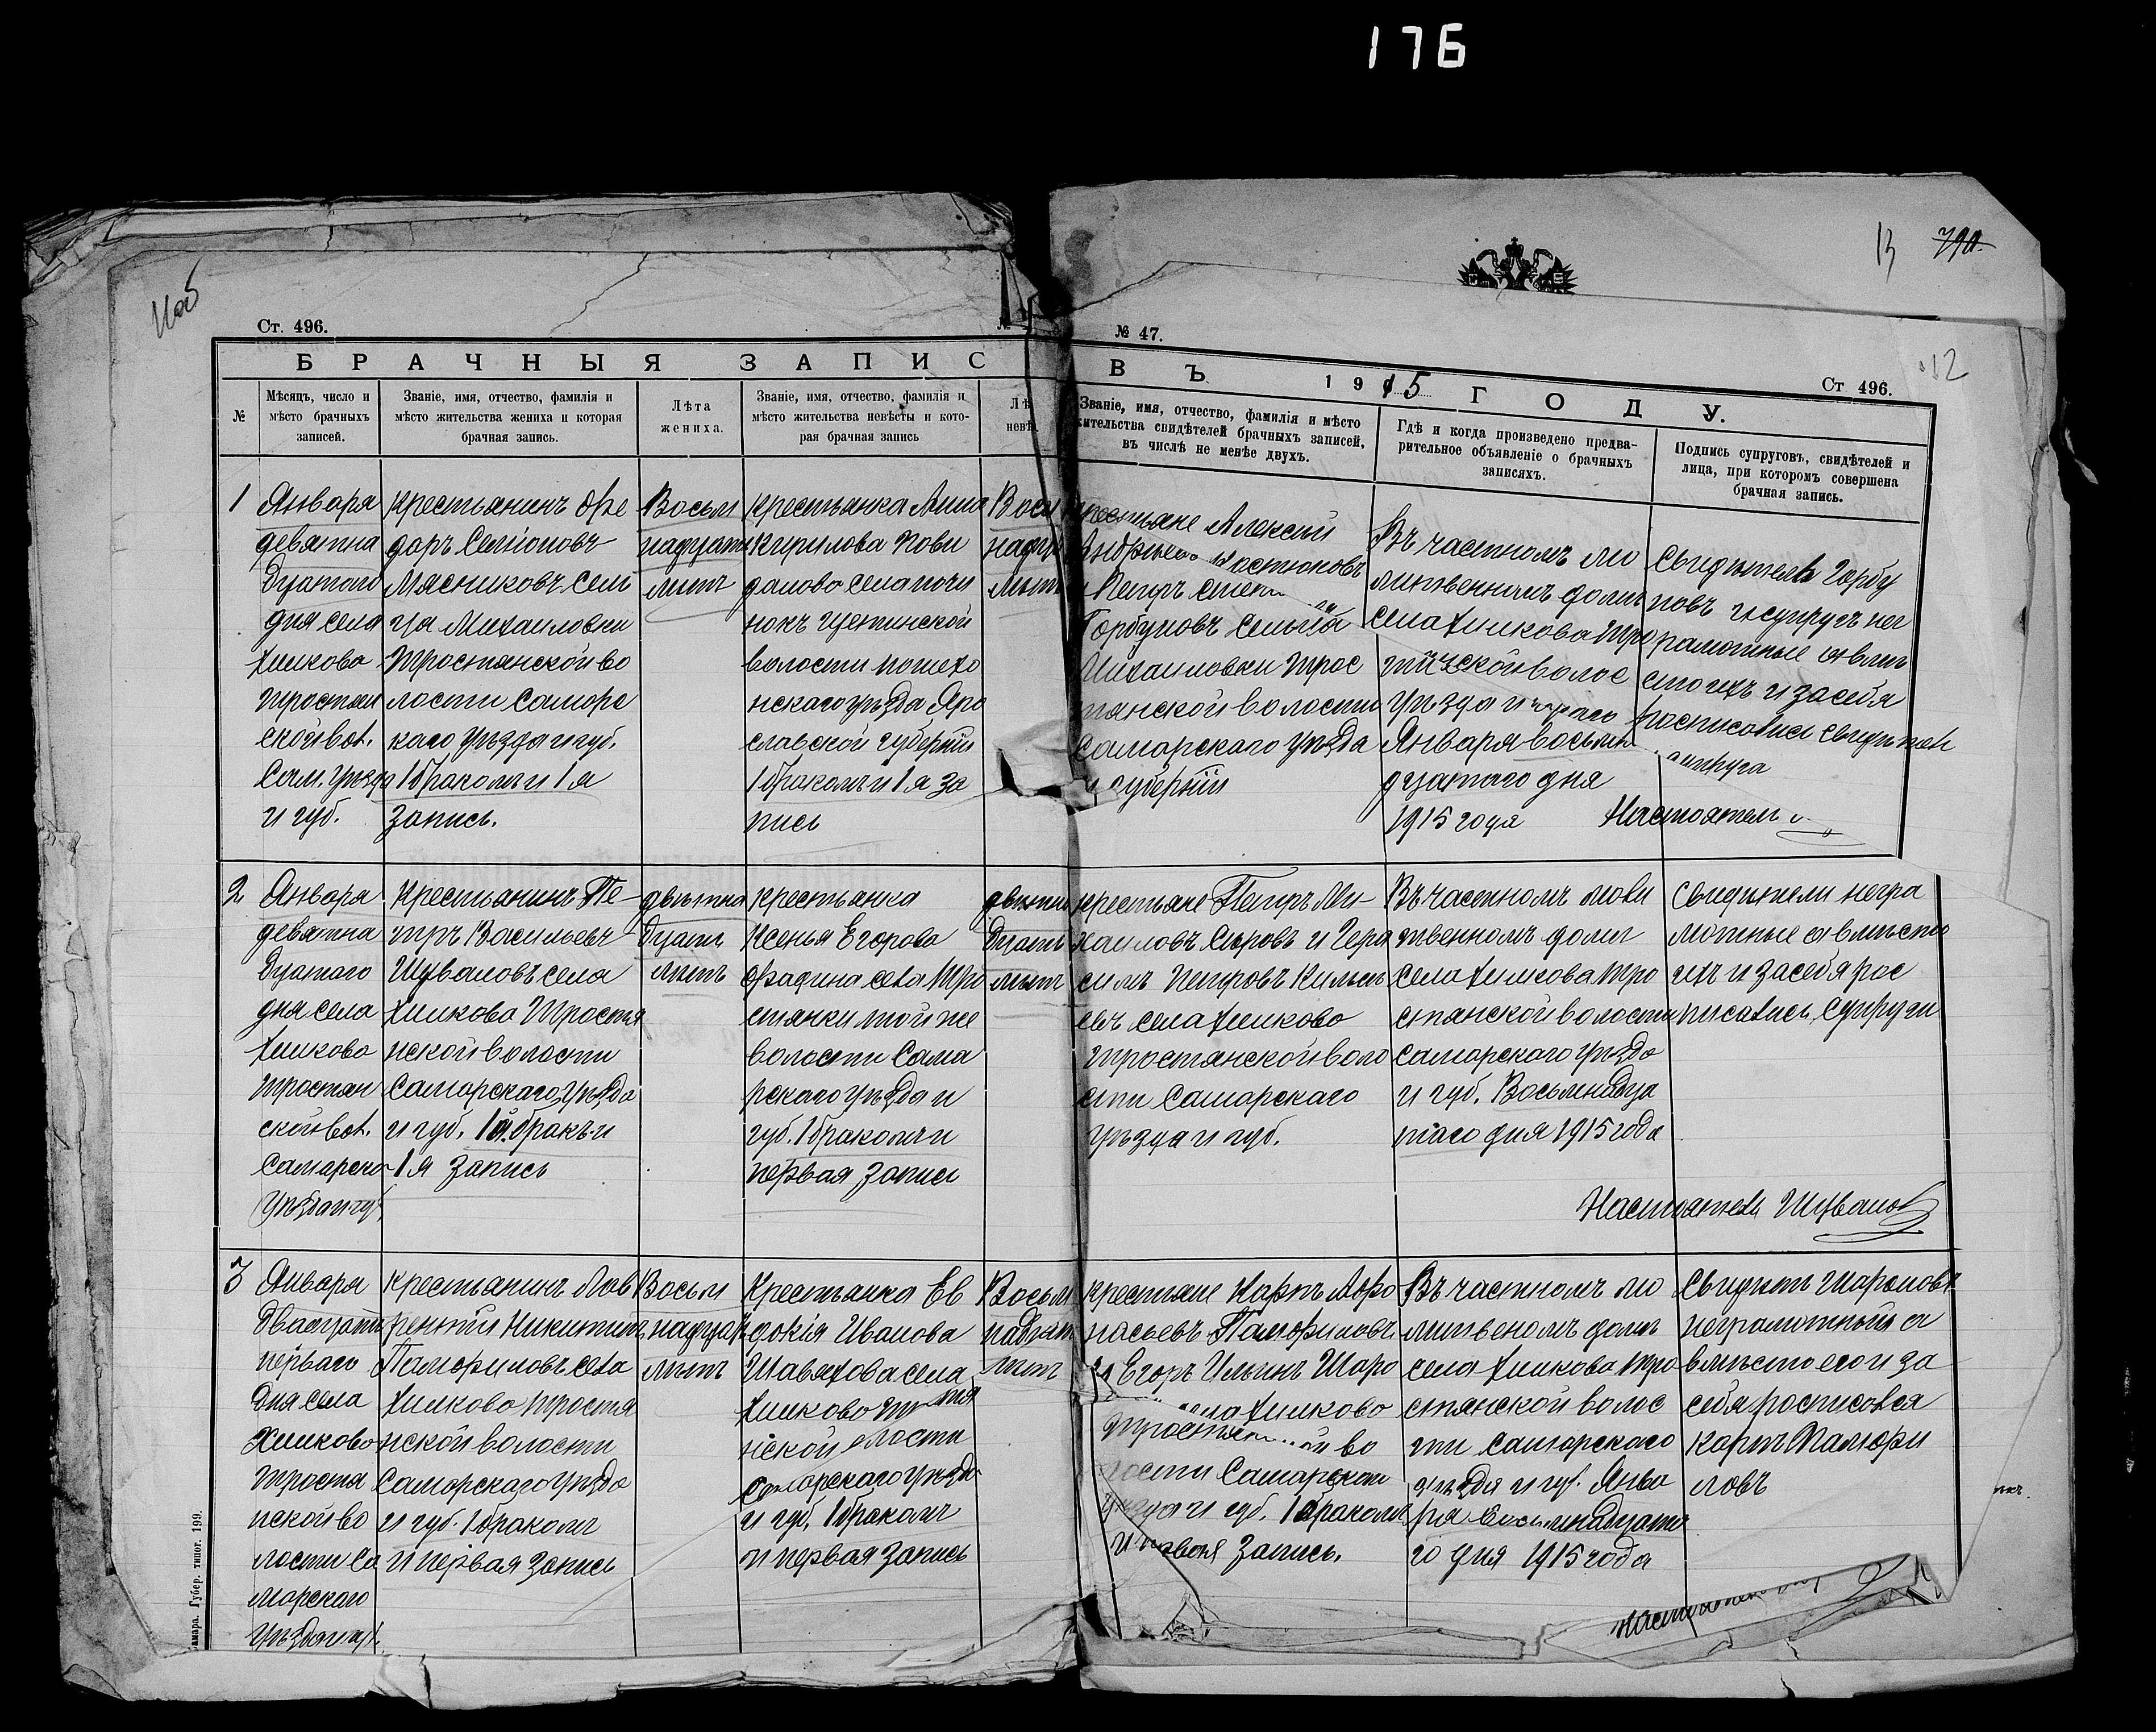 176
13 790.
Ст. 496.
№ 47.
Ст. 496.
12
БРАЧНЫЯ ЗАПИС
ВЪ 1915 ГОДУ.
№
Мѣсяцъ, число и
мѣсто брачныхъ
записей.
Званіе, имя, отчество, фамилія и
мѣсто жительства жениха и которая
брачная запись.
Лѣта
жениха.
Званіе, имя, отчество, фамилія и
мѣсто жительства невѣсты и кото-
рая брачная запись
Лѣ
невѣ
Званіе, имя, отчество, фамилія и мѣсто
жительства свидѣтелей брачныхъ записей,
въ числѣ не менѣе двухъ.
Гдѣ и когда произведено предва-
рительное объявленіе о брачныхъ
записяхъ.
Подпись супруговъ, свидѣтелей и
лица, при которомъ совершена
брачная запись.
1
Января
девятна
дцатого
дня села
Хилково
тростян
ской вол.
Сам. уѣзда
и губ.
Крестьянинъ Фе
доръ Семіоновъ
Мясниковъ Сель
ца Михаиловки
Тростянской во
лости Самарс
каго уѣзда и губ.
1 бракомъ и 1 я
запись.
Восьм
надцати
лѣтъ
Крестьянка Анна
Кирилова
села
волости пошехо
нскаго уѣзда Яро
славской губерніи
1 бракомъ и 1 я за
пись
Восм
надца
лѣтъ
Алексѣй
Костюковъ
Петръ
Горбуновъ Сельца
Михаиловки трос
тянской волости
Самарскаго уѣзда
и губерніи
Въ частномъ мо
литвенномъ домѣ
села Хилкова Тро
волос
уѣзда и
Января восьмна
дцатаго дня
1915 года
Свидѣтель Горбу
новъ и супругъ нег
рамотные а вмѣ
сто ихъ и за себя
росписались свидѣтель
супруга
Настоятель
2
Января
девятна
дцатаго
дня села
Хилково
тростян
ской вол.
Самарска
Уѣзда и губ.
Крестьянинъ Пе-
тръ Васильевъ
Шуваловъ села
Хилкова Тростя
нской волости
Самарскаго уѣзда
и губ. 1й бракъ и
1 я запись
девятна
дцать
лѣтъ
Крестьянка
Ксенья Егорова
Фадина села Тро
стянки той же
волости Сама
рскаго уѣзда и
губ. 1 бракомъ и
первая запись
девятна
дцать
лѣтъ
Крестьяне Петръ Ми-
хаиловъ Сыровъ и Гера
симъ Петровъ
евъ села Хилково
тростянской воло
сти Самарскаго
уѣзда и губ.
Въ частномъ моли
твенномъ домѣ
села Хилкова Тро
стянской волости
Самарскаго уѣзда
и губ. Восьмнадца
таго дня 1915 года
Свидѣтели негра
мотные а вмѣсто
ихъ и за себя рос
писались Супруги
Настоятель Шуваловъ
3
Января
двадцать
перваго
дня села
Хилково
троста
нской во
лости Са
марского
уѣзда и губ.
Крестьянинъ Лав
рентій Никитинъ
Памфиловъ села
Хилково тростя
нской волости
Самарскаго уѣзда
и губ. 1 бракомъ
и первая запись
Восьм
надцать
лѣтъ
Крестьянка Ев
докія Иванова
Шавяхова села
Хилково
нской волости
Самарскаго уѣзда
и губ. 1 бракомъ
и первая запись
Восьм
надцат
лѣтъ
Крестьяне Карпъ Афо
насьевъ Памфиловъ
и Егоръ Ильинъ Шаро
села Хилково
во
лости Самарскаго
уѣзда и губ. 1 бракомъ
и первая запись.
Въ частномъ мо
литвеномъ домѣ
села Хилкова тро
стянской волос
ти самарскаго
уѣзда и губ. Янва
ря восьмнадцата
го дня 1915 года
Свидѣт Шароновъ
неграмотный а
вмѣсто его и за
себя росписовся
карпъ Памфи
ловъ
Настоятель
амара. Губер. типог. 199.